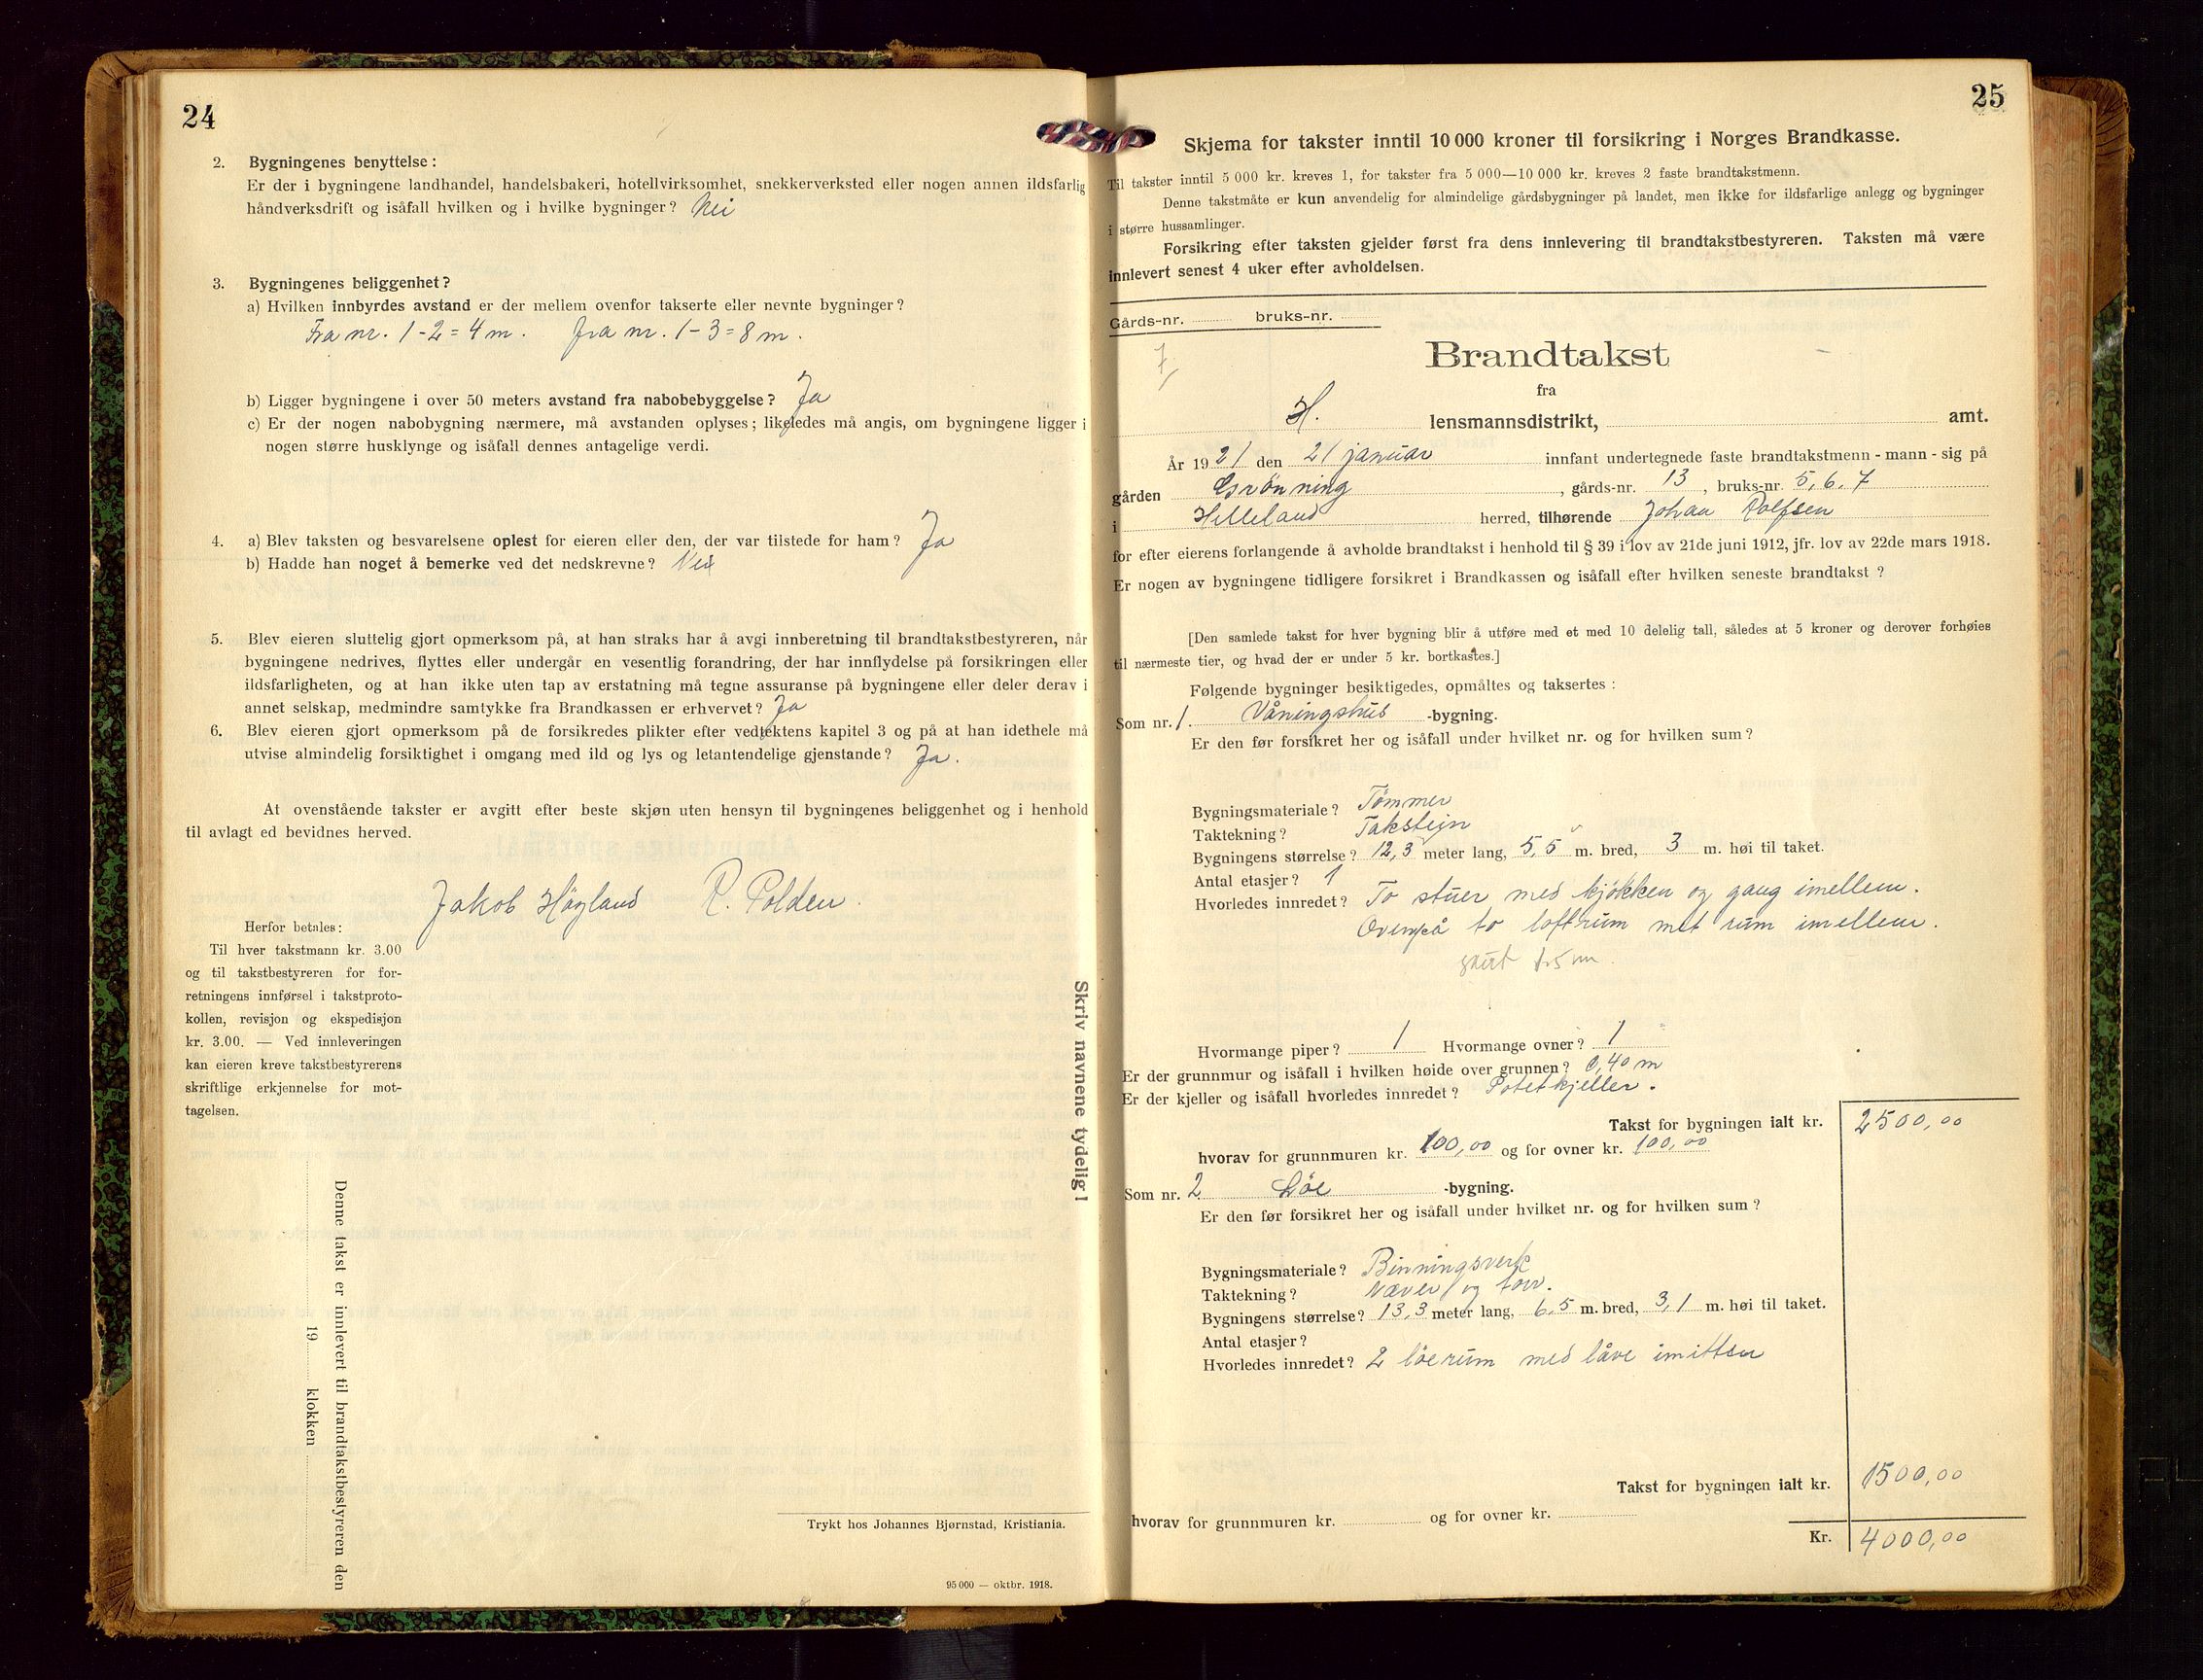 24
2. Bygningenes benyttelse:
Er der i bygningene landhandel, handelsbakeri, hotellvirksomhet, snekkerverksted eller nogen annen ildsfarlig
håndverksdrift og isåfall hvilken og i hvilke bygninger? Nei
3. Bygningenes beliggenhet?
a) Hvilken innbyrdes avstand er der mellem ovenfor takserte eller nevnte bygninger?
Fra nr. 1-2=4 m. fra nr. 1-3=8 m.
b) Ligger bygningene i over 50 meters avstand fra nabobebyggelse? Ja
c) Er der nogen nabobygning nærmere, må avstanden oplyses; likeledes må angis, om bygningene ligger i
nogen større husklynge og isåfall dennes antagelige verdi.
4. a) Blev taksten og besvarelsene oplest for eieren eller den, der var tilstede for ham? Ja
b) Hadde han noget å bemerke ved det nedskrevne? Nei
5. Blev eieren sluttelig gjort opmerksom på, at han straks har å avgi innberetning til brandtakstbestyreren, når
bygningene nedrives, flyttes eller undergår en vesentlig forandring, der har innflydelse på forsikringen eller
ildsfarligheten, og at han ikke uten tap av erstatning må tegne assuranse på bygningene eller deler derav i
annet selskap, medmindre samtykke fra Brandkassen er erhvervet? Ja
6. Blev eieren gjort opmerksom på de forsikredes plikter efter vedtektens kapitel 3 og på at han idethele må
utvise almindelig forsiktighet i omgang med ild og lys og letantendelige gjenstande? Ja.
At ovenstående takster er avgitt efter beste skjøn uten hensyn til bygningenes beliggenhet og i henhold
til avlagt ed bevidnes herved.
Jakob Høyland R. Polden.
Herfor betales:
Til hver takstmann kr. 3.00
og til takstbestyreren for for-
retningens innførsel i takstproto-
kollen, revisjon og ekspedisjon
kr. 3.00. — Ved innleveringen
kan eieren kreve takstbestyrerens
skriftlige erkjennelse for mot-
tagelsen.
Denne takst er innlevert til brandtakstbestyreren den
19 klokken
Skriv navnene tydelig!
Trykt hos Johannes Bjørnstad, Kristiania.
95 000 — oktbr. 1918.
25
Skjema for takster inntil 10 000 kroner til forsikring i Norges Brandkasse.
Til takster inntil 5 000 kr. kreves 1, for takster fra 5 000—10 000 kr. kreves 2 faste brandtakstmenn.
Denne takstmåte er kun anvendelig for almindelige gårdsbygninger på landet, men ikke for ildsfarlige anlegg og bygninger
i større hussamlinger.
Forsikring efter taksten gjelder først fra dens innlevering til brandtakstbestyreren. Taksten må være
innlevert senest 4 uker efter avholdelsen.
Gårds-nr. bruks-nr.
7
Brandtakst
fra
H. lensmannsdistrikt, amt.
År 1921 den 21 januar innfant undertegnede faste brandtakstmenn - mann - sig på
gården Grönning, gårds-nr. 13, bruks-nr. 5, 6, 7
i Helleland herred, tilhørende Johan Rolfsen
for efter eierens forlangende å avholde brandtakst i henhold til § 39 i lov av 21de juni 1912, jfr. lov av 22de mars 1918.
Er nogen av bygningene tidligere forsikret i Brandkassen og isåfall efter hvilken seneste brandtakst?
[Den samlede takst for hver bygning blir å utføre med et med 10 delelig tall, således at 5 kroner og derover forhøies
til nærmeste tier, og hvad der er under 5 kr. bortkastes.]
Følgende bygninger besiktigedes, opmåltes og taksertes:
Som nr. 1. Våningshus -bygning.
Er den før forsikret her og isåfall under hvilket nr. og for hvilken sum?
Bygningsmateriale? Tömmer
Taktekning? Takstejn
Bygningens størrelse? 12,3 meter lang, 5,5 m. bred, 3 m. høi til taket.
Antal etasjer? 1
Hvorledes innredet? To stuer med kjökken og gang imellem.
Ovenpå to loftrum met rum imellem.
skut 1.5 m.
Hvormange piper? 1 Hvormange ovner? 1
Er der grunnmur og isåfall i hvilken høide over grunnen? 0,40 m
Er der kjeller og isåfall hvorledes innredet? Potetkjeller.
Takst for bygningen ialt kr. 2500,00
hvorav for grunnmuren kr. 100,00 og for ovner kr. 100,00
Som nr. 2 Löe -bygning.
Er den før forsikret her og isåfall under hvilket nr. og for hvilken sum?
Bygningsmateriale? Binningsverk
Taktekning? Næver og torv.
Bygningens størrelse? 13,3 meter lang, 6,5 m. bred, 3,1 m. høi til taket.
Antal etasjer?
Hvorledes innredet? 2 löerum med låve imitten
Takst for bygningen ialt kr. 1500,00
hvorav for grunnmuren kr. og for ovner kr.
Kr. 4000,00